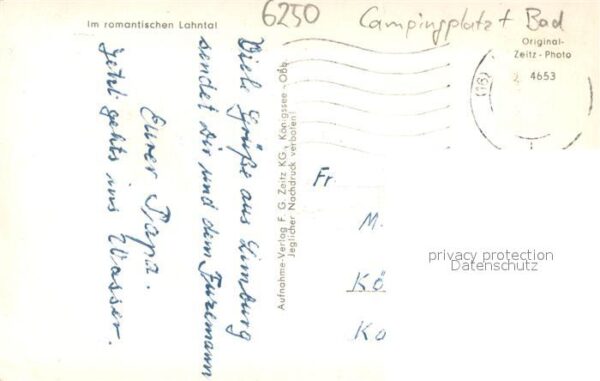 6250 Campingplatz + Bad
Im romantischen Lahntal
Original-
Zeitz - Photo
4653
(16)
Viele Grüße aus Limburg
sendet Dir und dem
Eurer Papa.
Jetzt gehts ins Wasser.
Aufnahme-Verlag F. G. Zeitz KG., Königssee - Obb.
Jeglicher Nachdruck verboten!
Fr
M.
Kö
Ko
privacy protection
Datenschutz